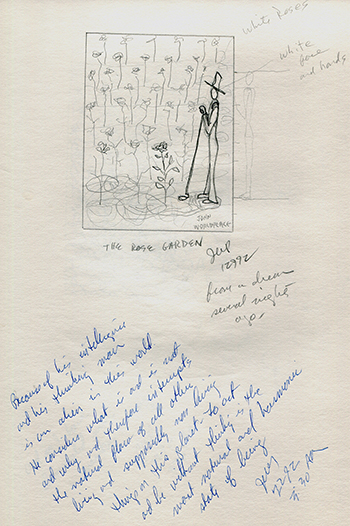 white Roses
white
face
and hands
JOHN
THE ROSE GARDEN
12992
from a dream
several nights
ago.
Because of his intelligence
and his thinking man
is an alien in this world
He considers what is and is not
and why and therefore interrupts
the natural place of all other
living and supposedly non living
things on this planet - to act
and be without thinking is the
most natural and harmonic
state of being